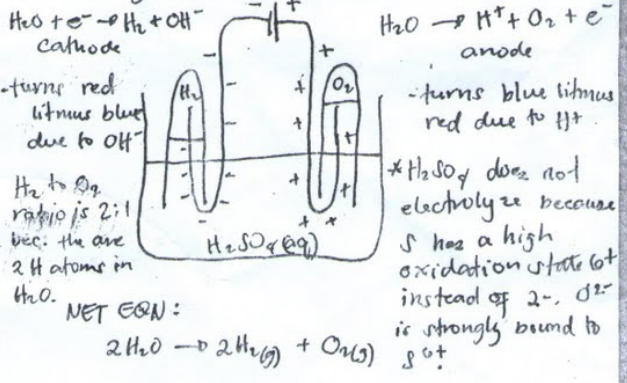 H₂O + e⁻ → H₂ + OH⁻
cathode
- turns red
litmus blue
due to OH⁻
H₂ to O₂
ratio is 2:1
bec. the are
2 H atoms in
H₂O.
- +
H₂
O₂
H₂SO₄(aq)
H₂O → H⁺ + O₂ + e⁻
anode
- turns blue litmus
red due to H⁺
* H₂SO₄ does not
electrolyze because
S has a high
oxidation state 6+
instead of 2-. O²⁻
is strongly bound to
S⁶⁺.
NET EQN:
2H₂O → 2H₂(g) + O₂(g)